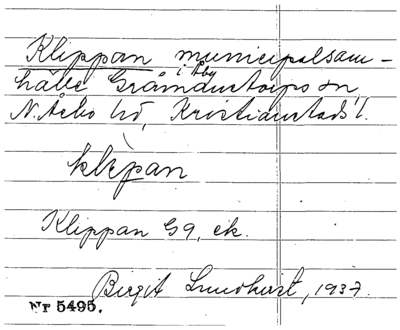 Klippan municipalsam-
i Åby
hälle Gråmanstorps sn
N. Åsbo hd, Kristianstads l.
klèpan
Klippan GA, ek.
Birgit Lundkvist, 1937.
Nr 5495.